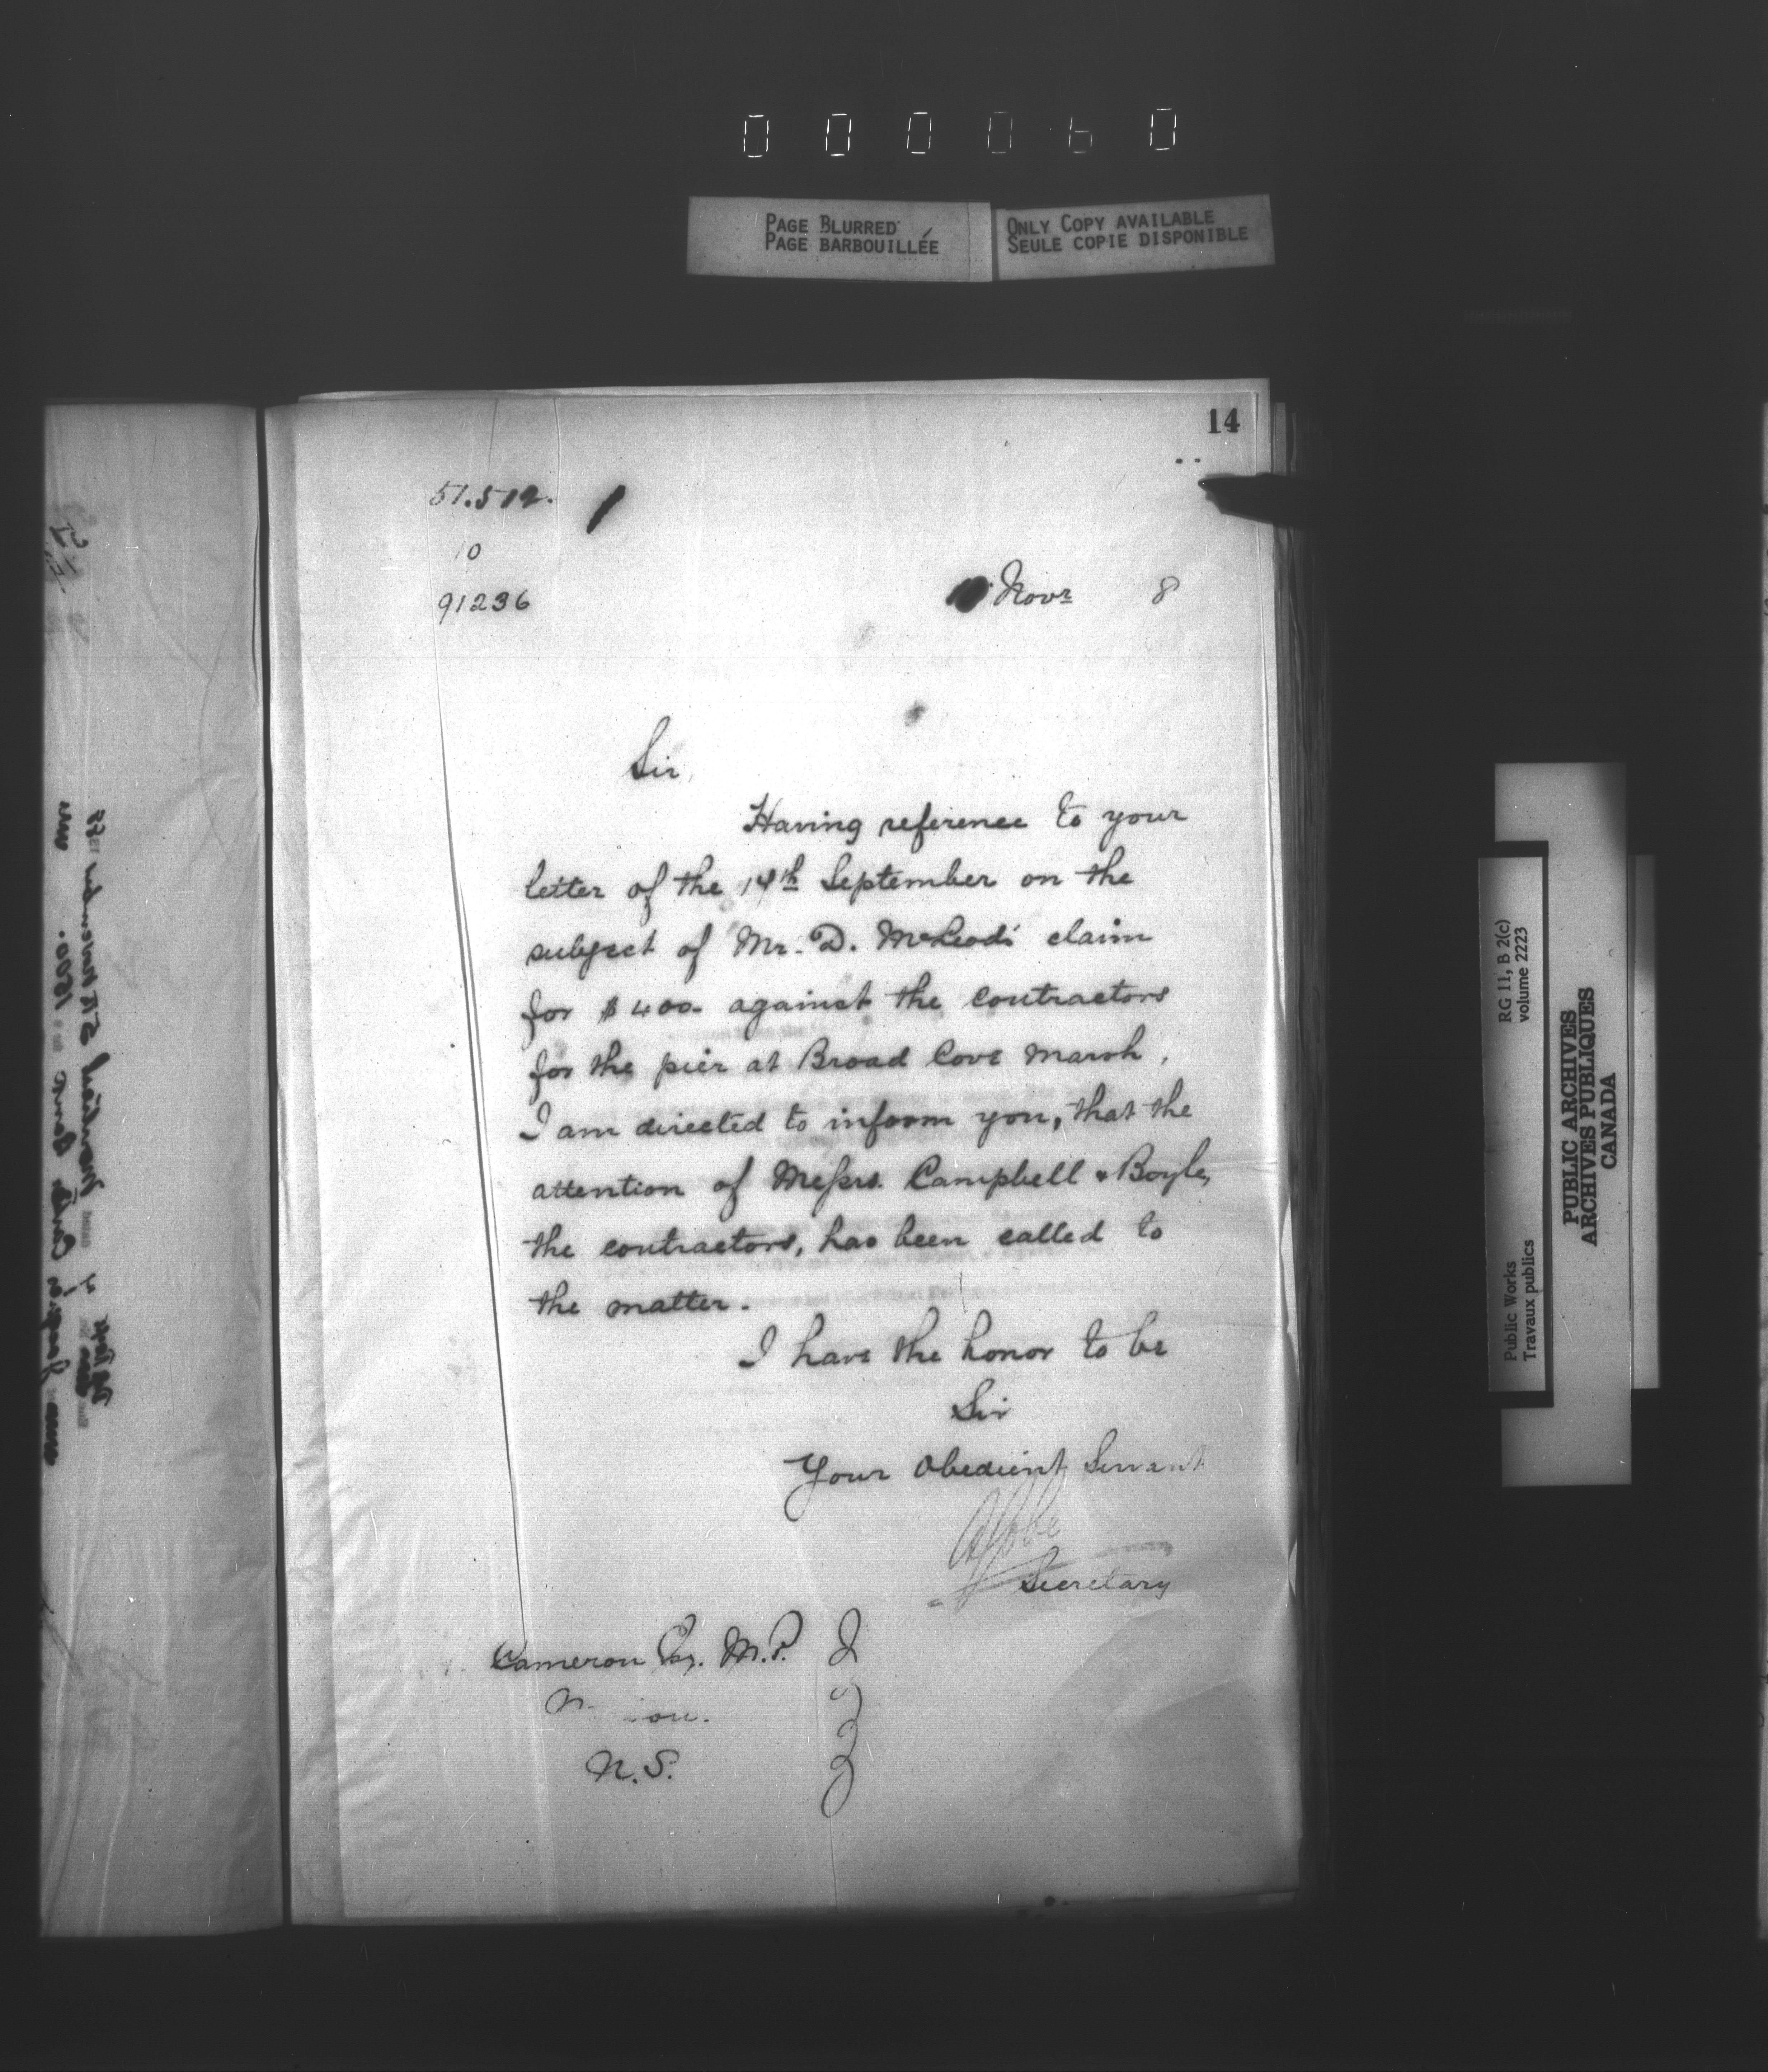 000060
PAGE BLURRED
PAGE BARBOUILLÉE
ONLY COPY AVAILABLE
SEULE COPIE DISPONIBLE
14
51.512.
10
91236
Novr 8
Sir,
Having reference to your
letter of the 14th September on the
subject of Mr. D. McLeod's claim
for $400- against the contractors
for the pier at Broad Cove Marsh,
I am directed to inform you, that the
attention of Messrs. Campbell & Boyle,
the contractors, has been called to
the matter.
I have the honor to be
Sir
Your Obedient Servant
Secretary
Cameron Esq. M.P.
N.S.
RG 11, B 2(c)
volume 2223
Public Works
Travaux publics
PUBLIC ARCHIVES
ARCHIVES PUBLIQUES
CANADA